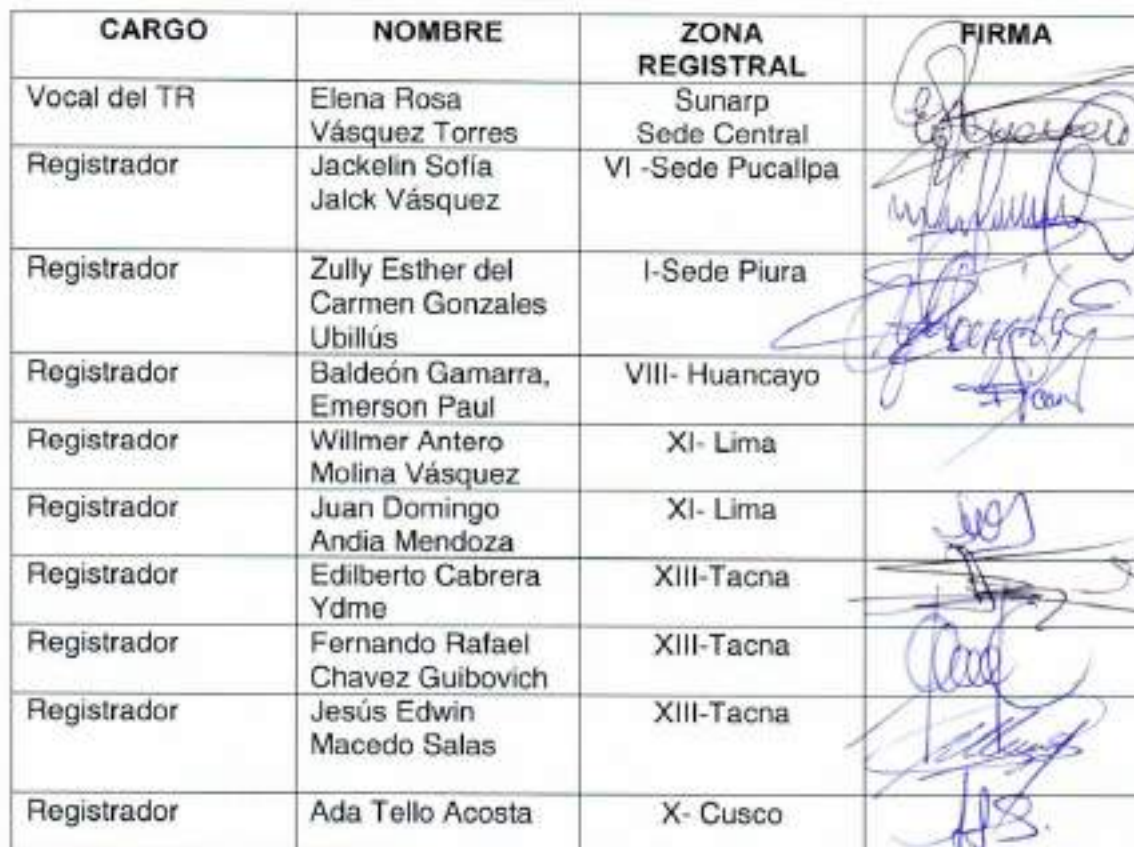 CARGO
NOMBRE
ZONA
REGISTRAL
FIRMA
Vocal del TR
Elena Rosa
Vásquez Torres
Sunarp
Sede Central
Registrador
Jackelin Sofía
Jalck Vásquez
VI -Sede Pucallpa
Registrador
Zully Esther del
Carmen Gonzales
Ubillús
I-Sede Piura
Registrador
Baldeón Gamarra,
Emerson Paul
VIII- Huancayo
Registrador
Willmer Antero
Molina Vásquez
XI- Lima
Registrador
Juan Domingo
Andia Mendoza
XI- Lima
Registrador
Edilberto Cabrera
Ydme
XIII-Tacna
Registrador
Fernando Rafael
Chavez Guibovich
XIII-Tacna
Registrador
Jesús Edwin
Macedo Salas
XIII-Tacna
Registrador
Ada Tello Acosta
X- Cusco